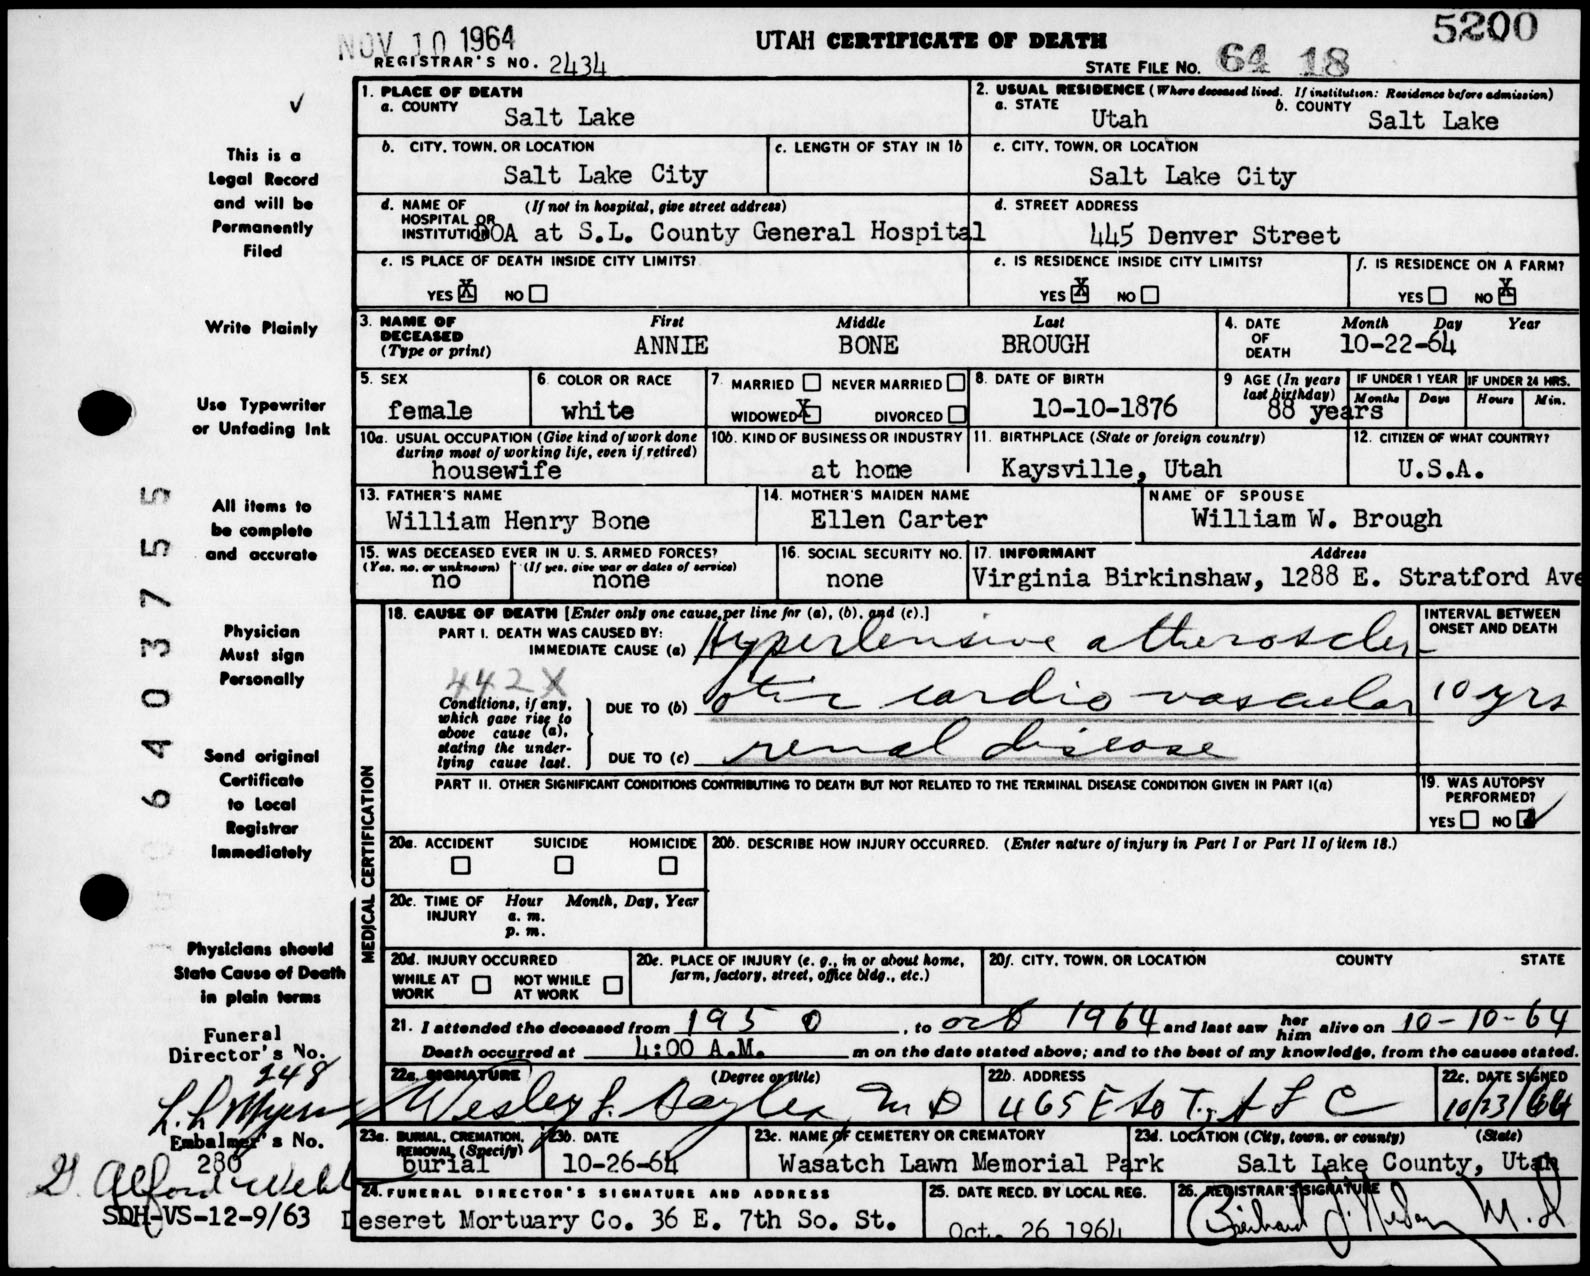 NOV 10 1964
5200
UTAH CERTIFICATE OF DEATH
REGISTRAR'S NO. 2434
STATE FILE NO. 64 18
✓
This is a
Legal Record
and will be
Permanently
Filed
Write Plainly
Use Typewriter
or Unfading Ink
All items to
be complete
and accurate
Physician
Must sign
Personally
Send original
Certificate
to Local
Registrar
Immediately
Physicians should
State Cause of Death
in plain terms
Funeral
Director's No.
248
Embalmer's No.
280
SDH-VS-12-9/63
6403755
1. PLACE OF DEATH
a. COUNTY Salt Lake
2. USUAL RESIDENCE (Where deceased lived. If institution: Residence before admission)
a. STATE Utah b. COUNTY Salt Lake
b. CITY, TOWN, OR LOCATION Salt Lake City
c. LENGTH OF STAY IN 1b
c. CITY, TOWN, OR LOCATION Salt Lake City
d. NAME OF HOSPITAL OR INSTITUTION (If not in hospital, give street address)
DOA at S.L. County General Hospital
d. STREET ADDRESS
445 Denver Street
e. IS PLACE OF DEATH INSIDE CITY LIMITS?
YES X NO
e. IS RESIDENCE INSIDE CITY LIMITS?
YES X NO
f. IS RESIDENCE ON A FARM?
YES NO X
3. NAME OF DECEASED (Type or print)
First Middle Last
ANNIE BONE BROUGH
4. DATE OF DEATH Month Day Year
10-22-64
5. SEX female
6. COLOR OR RACE white
7. MARRIED NEVER MARRIED
WIDOWED X DIVORCED
8. DATE OF BIRTH
10-10-1876
9 AGE (In years last birthday) 88 years
IF UNDER 1 YEAR Months Days
IF UNDER 24 HRS. Hours Min.
10a. USUAL OCCUPATION (Give kind of work done during most of working life, even if retired)
housewife
10b. KIND OF BUSINESS OR INDUSTRY
at home
11. BIRTHPLACE (State or foreign country)
Kaysville, Utah
12. CITIZEN OF WHAT COUNTRY?
U.S.A.
13. FATHER'S NAME
William Henry Bone
14. MOTHER'S MAIDEN NAME
Ellen Carter
NAME OF SPOUSE
William W. Brough
15. WAS DECEASED EVER IN U. S. ARMED FORCES?
(Yes, no, or unknown) (If yes, give war or dates of service)
no none
16. SOCIAL SECURITY NO.
none
17. INFORMANT Address
Virginia Birkinshaw, 1288 E. Stratford Ave
MEDICAL CERTIFICATION
18. CAUSE OF DEATH [Enter only one cause per line for (a), (b), and (c).]
PART I. DEATH WAS CAUSED BY:
IMMEDIATE CAUSE (a) Hypertensive atheroscler
442X
Conditions, if any, which gave rise to above cause (a), stating the underlying cause last.
DUE TO (b) otic cardio vascular
DUE TO (c) renal disease
INTERVAL BETWEEN ONSET AND DEATH
10 yrs
PART II. OTHER SIGNIFICANT CONDITIONS CONTRIBUTING TO DEATH BUT NOT RELATED TO THE TERMINAL DISEASE CONDITION GIVEN IN PART I(a)
19. WAS AUTOPSY PERFORMED?
YES NO ✓
20a. ACCIDENT SUICIDE HOMICIDE
20b. DESCRIBE HOW INJURY OCCURRED. (Enter nature of injury in Part I or Part II of item 18.)
20c. TIME OF INJURY Hour Month, Day, Year
a. m.
p. m.
20d. INJURY OCCURRED
WHILE AT WORK NOT WHILE AT WORK
20e. PLACE OF INJURY (e. g., in or about home, farm, factory, street, office bldg., etc.)
20f. CITY, TOWN, OR LOCATION COUNTY STATE
21. I attended the deceased from 1950, to Oct 1964 and last saw her him alive on 10-10-64
Death occurred at 4:00 A.M. m on the date stated above; and to the best of my knowledge, from the causes stated.
22a. SIGNATURE (Degree or title)
Wesley MD
22b. ADDRESS
465 E So T.
22c. DATE SIGNED
10/23/64
23a. BURIAL, CREMATION, REMOVAL (Specify)
burial
23b. DATE
10-26-64
23c. NAME OF CEMETERY OR CREMATORY
Wasatch Lawn Memorial Park
23d. LOCATION (City, town, or county) (State)
Salt Lake County, Utah
24. FUNERAL DIRECTOR'S SIGNATURE AND ADDRESS
Deseret Mortuary Co. 36 E. 7th So. St.
25. DATE RECD. BY LOCAL REG.
Oct. 26 1964
26. REGISTRAR'S SIGNATURE